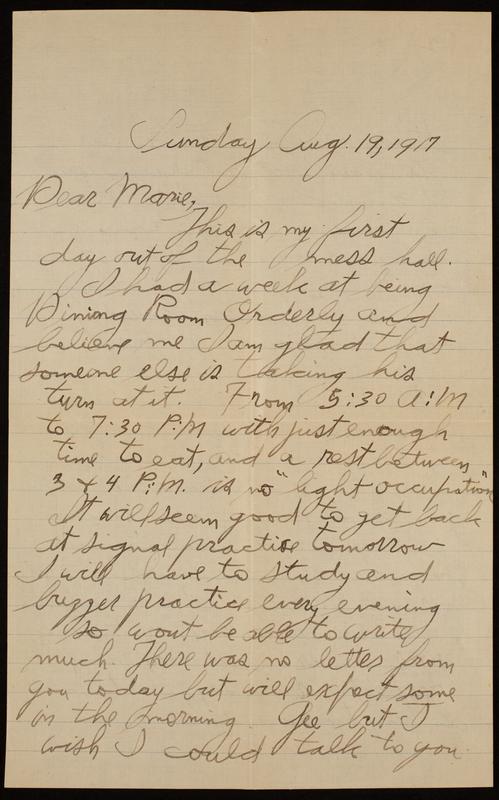 Sunday Aug. 19, 1917
Dear Marie,
This is my first
day out of the mess hall.
I had a week at being
Dining Room Orderly and
believe me I am glad that
someone else is taking his
turn at it. From 5:30 A:M
to 7:30 P:M with just enough
time to eat, and a rest between
3 & 4 P:M. is no "light occupation"
It will seem good to get back
at signal practice tomorrow
I will have to study and
buzzer practice every evening
so wont be able to write
much. There was no letter from
you today but will expect some
in the morning. Gee but I
wish I could talk to you.